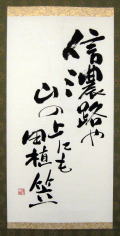 信濃路や
山の上にも
田植笠